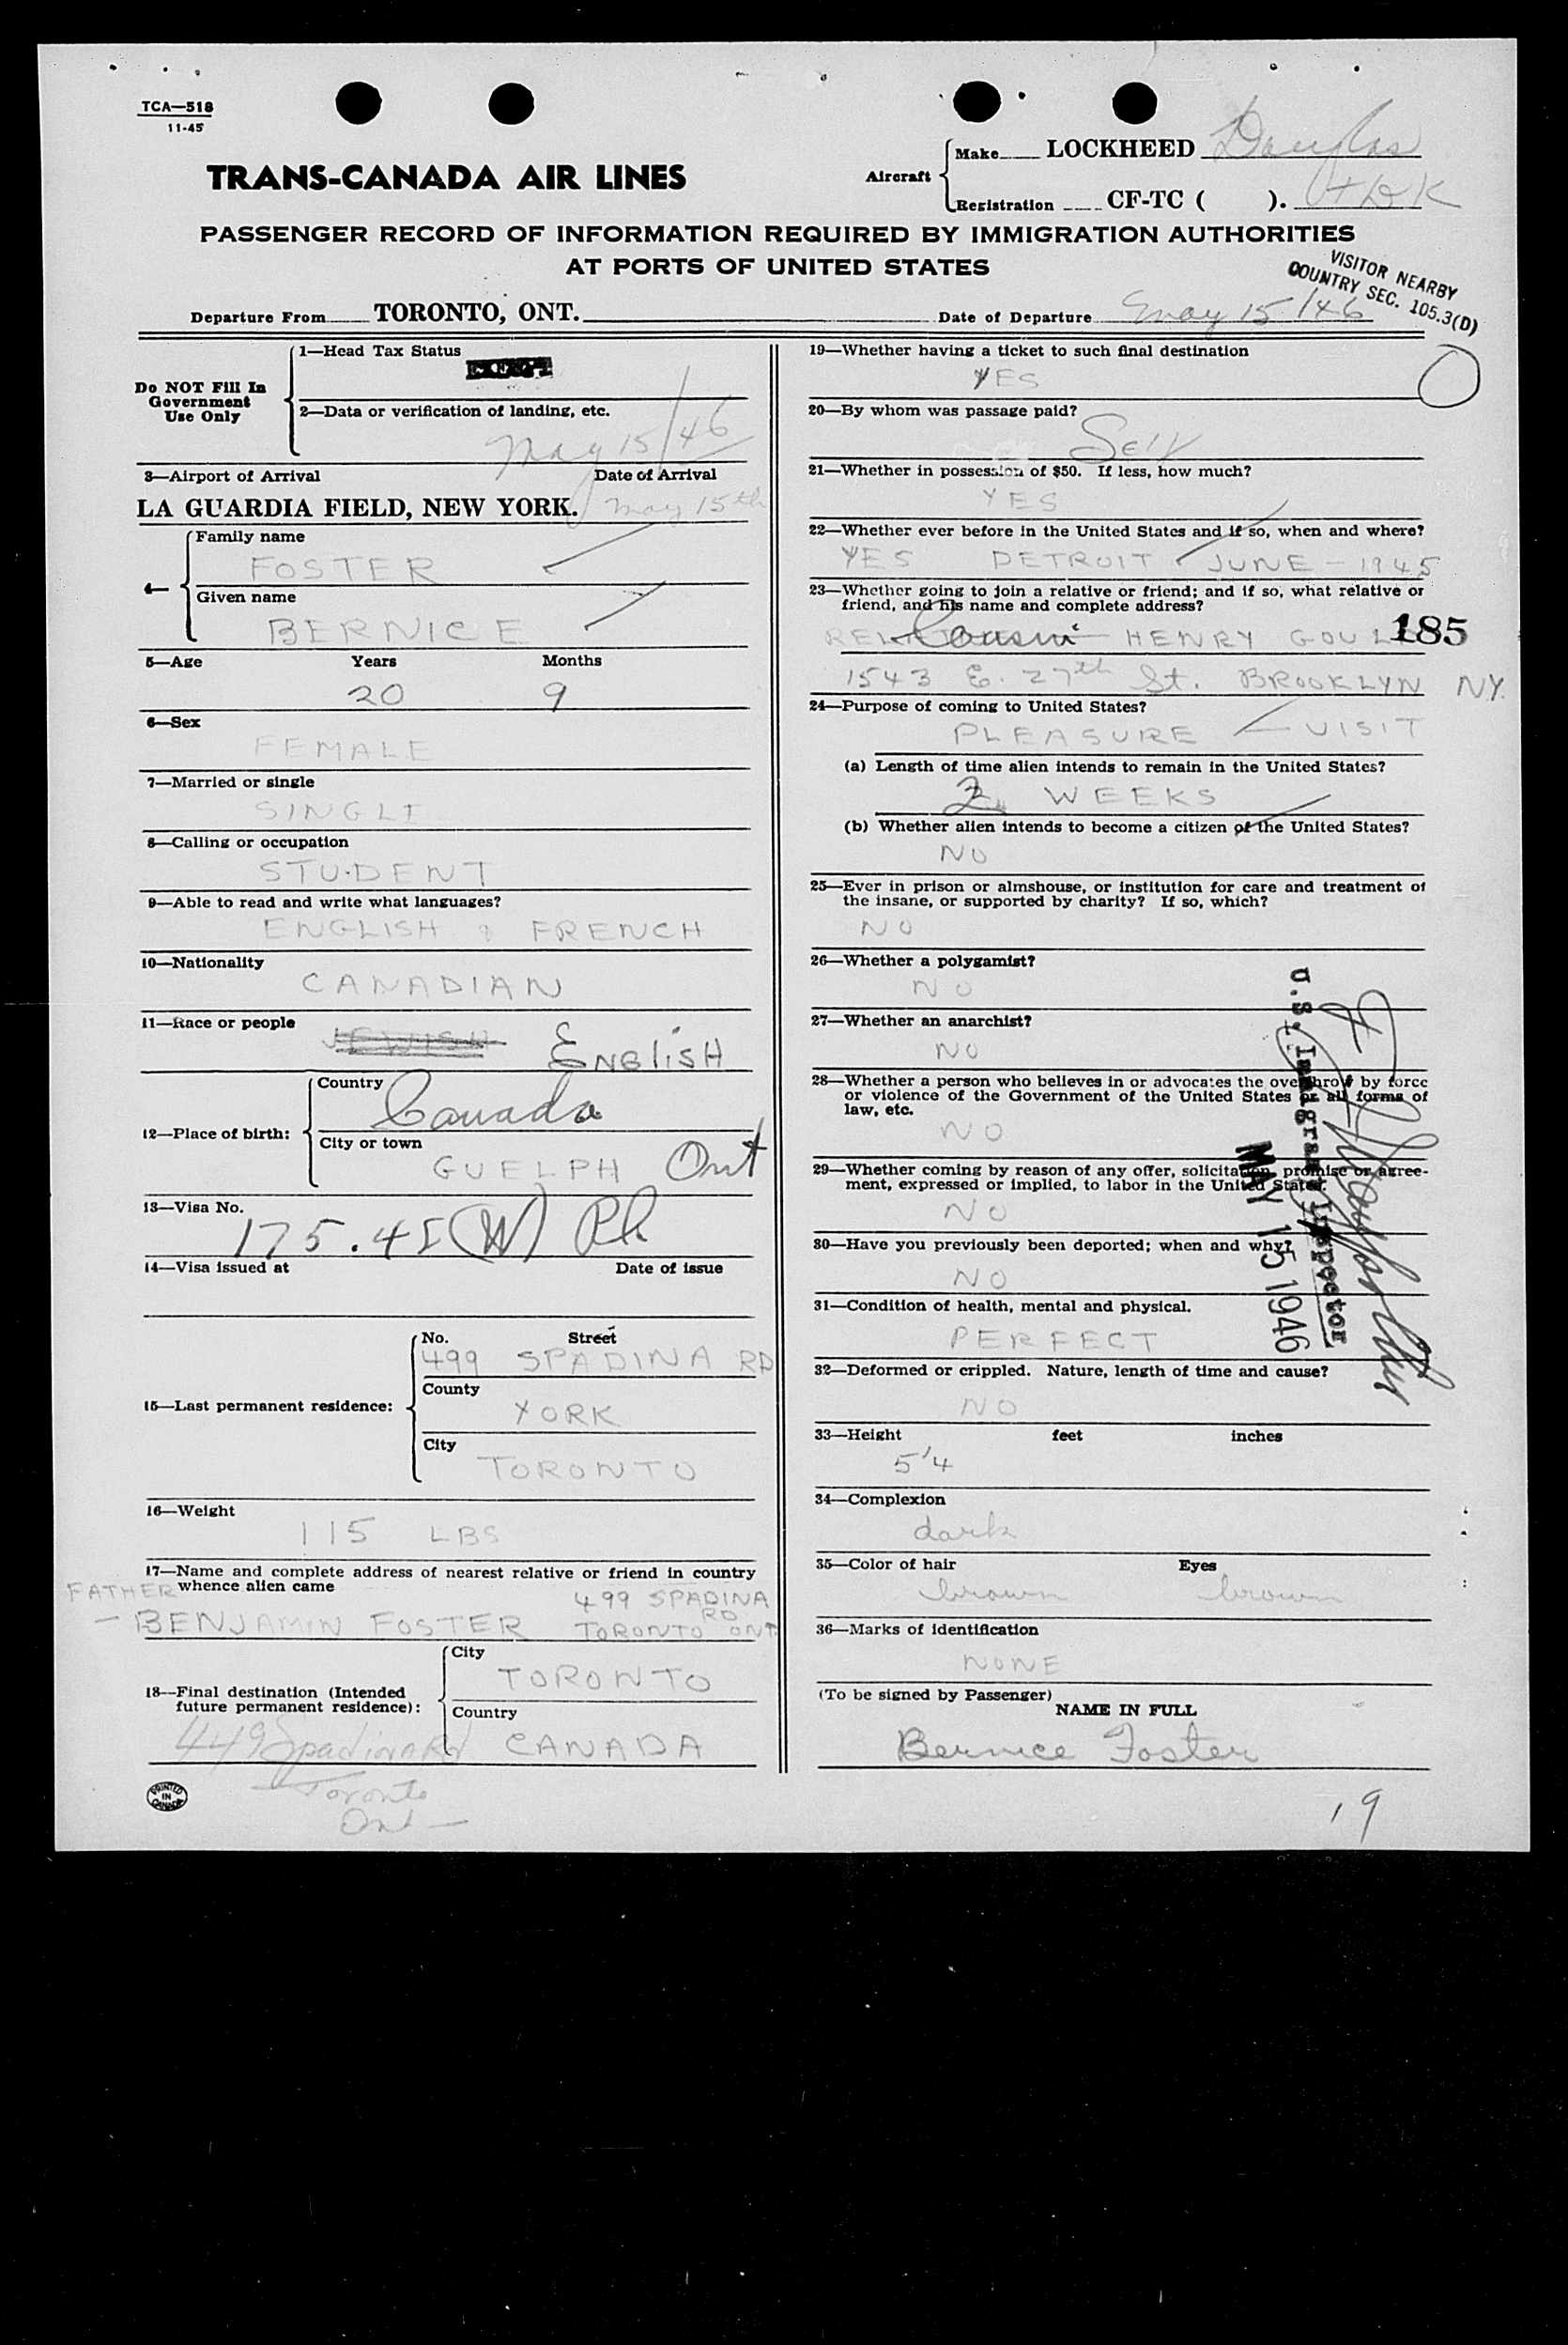 TCA—518
11-45
TRANS-CANADA AIR LINES
Aircraft
Make LOCKHEED Douglas
Registration CF-TC ( ).
PASSENGER RECORD OF INFORMATION REQUIRED BY IMMIGRATION AUTHORITIES
AT PORTS OF UNITED STATES
VISITOR NEARBY
COUNTRY SEC. 105.3(D)
Departure From TORONTO, ONT.
Date of Departure May 15/46
Do NOT Fill In
Government
Use Only
1—Head Tax Status
EXEMPT
2—Data or verification of landing, etc.
May 15/46
3—Airport of Arrival Date of Arrival
LA GUARDIA FIELD, NEW YORK. May 15th
4—
Family name
FOSTER
Given name
BERNICE
5—Age Years Months
20 9
6—Sex
FEMALE
7—Married or single
SINGLE
8—Calling or occupation
STUDENT
9—Able to read and write what languages?
ENGLISH & FRENCH
10—Nationality
CANADIAN
11—Race or people
JEWISH ENGLISH
12—Place of birth:
Country
Canada
City or town
GUELPH Ont
13—Visa No.
175.45 (W)
14—Visa issued at Date of issue
15—Last permanent residence:
No. Street
499 SPADINA RD
County
YORK
City
TORONTO
16—Weight
115 LBS
17—Name and complete address of nearest relative or friend in country
whence alien came
FATHER
499 SPADINA
RD
— BENJAMIN FOSTER TORONTO ONT
18—Final destination (Intended
future permanent residence):
City
TORONTO
Country
CANADA
449 Spadina Rd
Toronto
Ont —
PRINTED
IN
CANADA
19—Whether having a ticket to such final destination
YES
20—By whom was passage paid?
Self
21—Whether in possession of $50. If less, how much?
YES
22—Whether ever before in the United States and if so, when and where?
YES DETROIT JUNE — 1945
23—Whether going to join a relative or friend; and if so, what relative or
friend, and his name and complete address?
Cousin HENRY
185
1543 E. 27th St. BROOKLYN NY.
24—Purpose of coming to United States?
PLEASURE — VISIT
(a) Length of time alien intends to remain in the United States?
2 WEEKS
(b) Whether alien intends to become a citizen of the United States?
NO
25—Ever in prison or almshouse, or institution for care and treatment of
the insane, or supported by charity? If so, which?
NO
26—Whether a polygamist?
NO
27—Whether an anarchist?
NO
28—Whether a person who believes in or advocates the overthrow by force
or violence of the Government of the United States or all forms of
law, etc.
NO
29—Whether coming by reason of any offer, solicitation, promise or agree-
ment, expressed or implied, to labor in the United States.
NO
30—Have you previously been deported; when and why?
NO
31—Condition of health, mental and physical.
PERFECT
U.S. Immigrant Inspector
MAY 15 1946
32—Deformed or crippled. Nature, length of time and cause?
NO
33—Height feet inches
5'4
34—Complexion
dark
35—Color of hair Eyes
brown brown
36—Marks of identification
NONE
(To be signed by Passenger)
NAME IN FULL
Bernice Foster
19